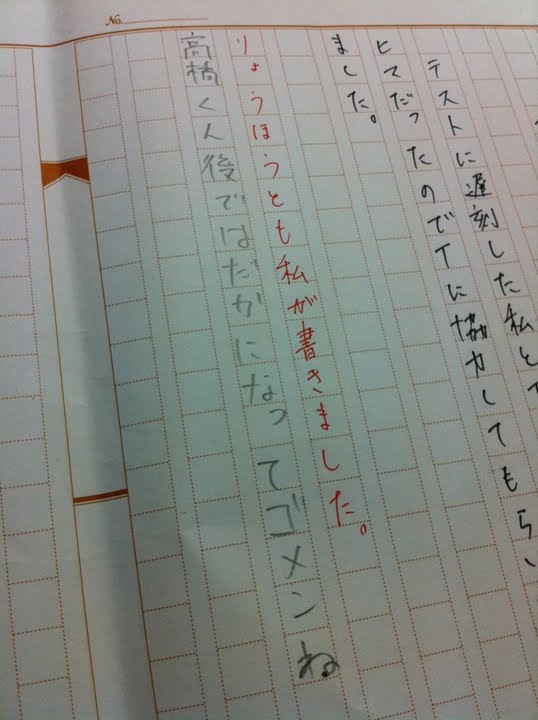 No.
テストに遅刻した私と
ヒマだったのでTに協力してもらい
ました。
りょうほうとも私が書きました。
高橋くん後ではだかになってゴメンね